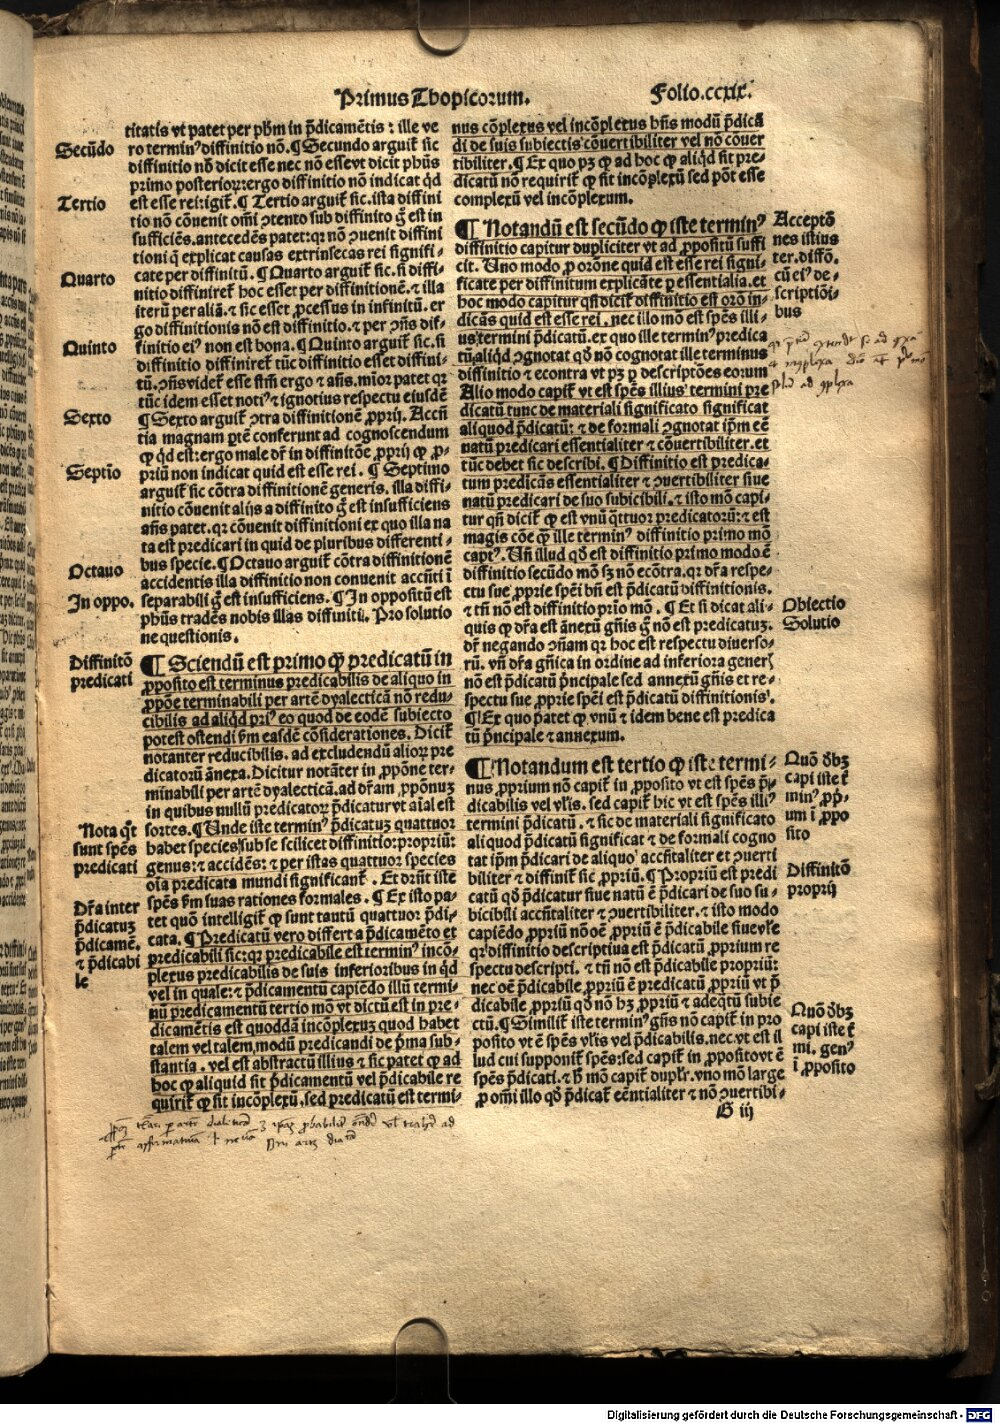 Primus Thopicorum.
Folio.ccxix.
titatis vt patet per phm in p̄dicamētis : ille ve
ro termin⁹ diffinitio nō.¶Secundo arguit᷑ sic
diffinitio nō dicit esse nec nō esse vt dicit phūs
primo posteriorꝝ ergo diffinitio nō indicat qd
est esse rei:igit᷑.¶ Tertio arguit᷑ sic.ista diffini
tio nō cōuenit om̄i ꝯtento sub diffinito ḡ est in
sufficiēs.antecedēs patet:qꝛ nō ꝯuenit diffini
tioni q̄ explicat causas extrinsecas rei signifi-
cate per diffinitū.¶Quarto arguit᷑ sic.si diffi-
nitio diffiniret᷑ hoc esset per diffinitionē.⁊ illa
iterū per aliā.⁊ sic esset ꝓcessus in infinitū. er
go diffinitionis nō est diffinitio.⁊ per ꝯn̄s dif-
finitio ei⁹ non est bona.¶Quinto arguit᷑ sic.si
diffinitio diffiniret᷑ tūc diffinitio esset diffini-
tū.ꝯn̄s videt᷑ esse fl̄m ergo ⁊ an̄s.mīor patet qꝛ
tūc idem esset noti⁹ ⁊ ignotius respectu eiusdē
¶Sexto arguit᷑ ꝯtra diffinitionē ꝓprij. Accn̄
tia magnam ꝑtē conferunt ad cognoscendum
ꝙ qd est:ergo male dr̄ in diffinitōe ꝓprij ꝙ ꝓ-
priū non indicat quid est esse rei . ¶ Septimo
arguit᷑ sic cōtra diffinitionē generis. illa diffi-
nitio cōuenit alijs a diffinito ḡ est insufficiens
an̄s patet.qꝛ cōuenit diffinitioni ex quo illa na
ta est predicari in quid de pluribus differenti-
bus specie.¶Octauo arguit᷑ cōtra diffinitionē
accidentis illa diffinitio non conuenit accn̄ti ī
separabili ḡ est insufficiens. ¶In oppositū est
phūs tradēs nobis illas diffinitū. Pro solutio
ne questionis.
¶ Sciendū est primo ꝙ predicatū in
ꝓposito est terminus predicabilis de aliquo in
ꝓpōne terminabili per artē dyalecticā nō redu-
cibilis ad aliqd pri⁹ eo quod de eodē subiecto
potest ostendi ẜm easdē cōsiderationes. Dicit᷑
notanter reducibilis. ad excludendū alioꝝ pre
dicatorū ānexa.Dicitur notāter in ꝓpōne ter-
minabili per artē dyalecticā.ad dr̄am ꝓpōnuꝫ
in quibus nullū predicatorꝝ p̄dicatur vt aīal est
sortes.¶Unde iste termin⁹ p̄dicatuꝫ quattuor
habet species sub se scilicet diffinitio:propriū:
genus:⁊ accidēs: ⁊ per istas quattuor species
oīa predicata mundi significant᷑ . Et dn̄t iste
spēs ẜm suas rationes formales . ¶ Ex isto pa-
tet quō intelligit᷑ ꝙ sunt tantū quattuor p̄di-
cata. ¶ Predicatū vero differt a p̄dicamēto et
predicabili sic:qꝛ predicabile est termin⁹ incō-
plexus predicabilis de suis inferioribus in qd
vel in quale:⁊ p̄dicamentū capiēdo illū termi-
nū predicamentū tertio mō vt dictū est in pre-
dicamētis est quoddā incōplexuꝫ quod habet
talem vel talem modū predicandi de p̄ma sub-
stantia . vel est abstractū illius ⁊ sic patet ꝙ ad
hoc ꝙ aliquid sit p̄dicamentū vel p̄dicabile re
quirit᷑ ꝙ sit incōplexū.sed predicatū est termi-
Secūdo
Tertio
Quarto
Quinto
Sexto
Septīo
Octauo
In oppo.
Diffinitō
predicati
Nota qt
sunt spēs
predicati
Dr̄a inter
p̄dicatuꝫ
p̄dicamē.
⁊ p̄dicabi
le
nus cōplexus vel incōplexus hn̄s modū p̄dicā
di de suis subiectis cōuertibiliter vel nō cōuer
tibiliter.¶ Ex quo pꝫ ꝙ ad hoc ꝙ aliqd sit pre-
dicatū nō requirit᷑ ꝙ sit incōplexū sed pōt esse
complexū vel incōplexum.
¶ Notandū est secūdo ꝙ iste termin⁹
diffinitio capitur dupliciter vt ad ꝓpositū suffi
cit. Uno modo ꝓ orōne quid est esse rei signi-
ficate per diffinitum explicāte ꝑ essentialia.et
hoc modo capitur qn̄ dicit᷑ diffinitio est orō in-
dicās quid est esse rei . nec illo mō est spēs illi-
us termini p̄dicatū.ex quo ille termin⁹ predica
tū aliqd ꝯgnotat qd nō cognotat ille terminus
diffinitio ⁊ econtra vt pꝫ ꝑ descriptōes eorum
Alio modo capit᷑ vt est spēs illius termini pre
dicatū tunc de materiali significato significat
aliquod p̄dicatū: ⁊ de formali ꝯgnotat ip̄m eē
natū predicari essentialiter ⁊ cōuertibiliter.et
tūc debet sic describi. ¶Diffinitio est predica-
tum predicās essentialiter ⁊ ꝯuertibiliter siue
natū predicari de suo subicibili.⁊ isto mō capi-
tur qn̄ dicit᷑ ꝙ est vnū q̄ttuor predicatorū:⁊ est
magis cōe ꝙ ille termin⁹ diffinitio primo mō
capt⁹. Un̄ illud qd est diffinitio primo modo ē
diffinitio secūdo mō sꝫ nō ecōtra.qꝛ dr̄a respe-
ctu sue ꝓprie spēi bn̄ est p̄dicatū diffinitionis.
⁊ tn̄ nō est diffinitio prīo mō . ¶ Et si dicat ali-
quis ꝙ dr̄a est ānexū gn̄is ḡ nō est predicatuꝫ.
dr̄ negando ꝯn̄am qꝛ hoc est respectu diuerso-
rū. vn̄ dr̄a gn̄ica in ordine ad inferiora gener⁊
nō est p̄dicatū p̄ncipale sed annexū gn̄is et re-
spectu sue ꝓprie spēi est p̄dicatū diffinitionis.
¶Ex quo patet ꝙ vnū ⁊ idem bene est predica
tū p̄ncipale ⁊ annexum.
¶ Notandum est tertio ꝙ iste termi-
nus ꝓprium nō capit᷑ in ꝓposito vt est spēs p̄-
dicabilis vel vl̄is. sed capit᷑ hic vt est spēs illi⁹
termini p̄dicatū . ⁊ sic de materiali significato
aliquod p̄dicatū significat ⁊ de formali cogno
tat ip̄m p̄dicari de aliquo accn̄taliter et ꝯuerti
biliter ⁊ diffinit᷑ sic ꝓpriū.¶ Propriū est predi
catū qd p̄dicatur siue natū ē p̄dicari de suo su-
bicibili accn̄taliter ⁊ ꝯuertibiliter.⁊ isto modo
capiēdo ꝓpriū nō oē ꝓpriū ē p̄dicabile siue vl̄e
qꝛ diffinitio descriptiua est p̄dicatū ꝓprium re
spectu descripti. ⁊ tn̄ nō est p̄dicabile propriū:
nec oē p̄dicabile ꝓpriū ē predicatū ꝓpriū vt p̄
dicabile ꝓpriū qd nō hꝫ ꝓpriū ⁊ adeqtū subie
ctū.¶Similit᷑ iste termin⁹ gn̄s nō capit᷑ in pro
posito vt ē spēs vl̄is vel p̄dicabilis.nec vt est il
lud cui supponit᷑ spēs:sed capit᷑ in ꝓposito vt ē
spēs p̄dicati.⁊ h̄ mō capit᷑ duplr̄.vno mō large
ꝓ om̄i illo qd p̄dicat᷑ eēntialiter ⁊ nō ꝯuertibi-
G iij
Acceptō
nes istius
ter.diffō.
cū ei⁹ de-
scriptiōi-
bus
Obiectio
Solutio
Quō dꝫ
capi iste t᷑
min⁹ ꝓp̄-
um ī ꝓpo
sito
Diffinitō
proprij
Quō dꝫ
capi iste t᷑
mi. gen⁹
ī ꝓposito
Digitalisierung gefördert durch die Deutsche Forschungsgemeinschaft - DFG